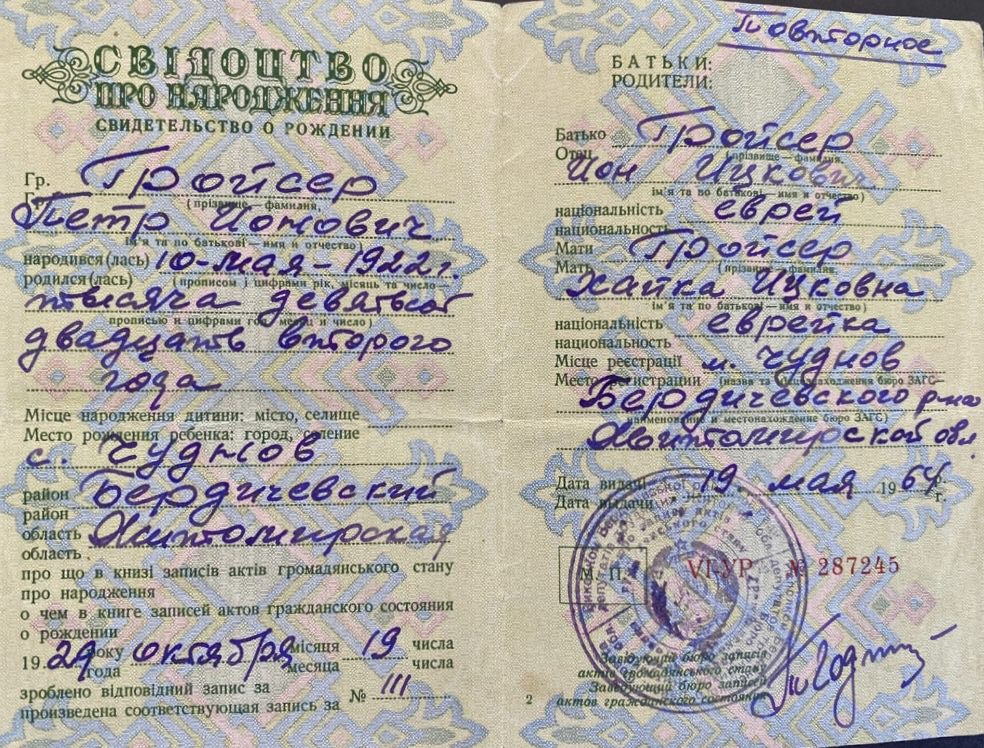 СВІДОЦТВО
ПРО НАРОДЖЕННЯ
СВИДЕТЕЛЬСТВО О РОЖДЕНИИ
Гр. Тройсер
(прізвище — фамилия,
Петр Ионович
ім'я та по батькові — имя и отчество)
народився (лась) 10-мая-1922 г.
родился (лась) (прописом і цифрами рік, місяць та число —
тысяча девятьсот
прописью и цифрами год, месяц и число)
двадцать второго
года
Місце народження дитини: місто, селище
Место рождения ребенка: город, селение
с. Чуднов
район Бердичевский
район
область Житомирская
область
про що в книзі записів актів громадянського стану
про народження
о чем в книге записей актов гражданского состояния
о рождении
19 29 року октября місяця 19 числа
года месяца числа
зроблено відповідний запис за
произведена соответствующая запись за № 111
Повторное
БАТЬКИ:
РОДИТЕЛИ:
Батько Тройсер
Отец (прізвище — фамилия,
Ион Ицкович
ім'я та по батькові — имя и отчество)
національність еврей
национальность
Мати Тройсер
Мать (прізвище — фамилия,
Хайка Ицковна
ім'я та по батькові — имя и отчество)
національність еврейка
национальность
Місце реєстрації м. Чуднов
Место регистрации (назва та місцезнаходження бюро ЗАГС —
Бердичевского р-на
наименование и местонахождение бюро ЗАГС)
Житомирской обл.
Дата видачі 19 мая 1964 р.
Дата выдачи г.
М. П. VI-УР № 287245
Завідуючий бюро записів
актів громадянського стану
Заведующий бюро записей
актов гражданского состояния
2